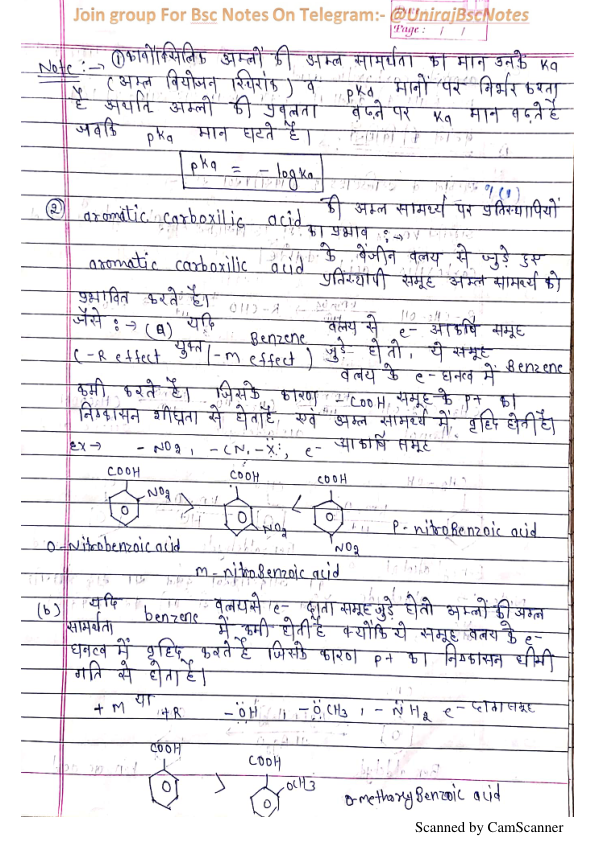 Join group For Bsc Notes On Telegram:- @UnirajBscNotes
Page: / /
Note :-→ ① कार्बोक्सिलिक अम्लों की अम्ल सामर्थता का मान उनके Ka
(अम्ल वियोजन स्थिरांक) व pKa मानों पर निर्भर करता
है अर्थात अम्लों की प्रबलता बढ़ने पर Ka मान बढ़ते है
जबकि pKa मान घटते है।
pKa = - logKa
② aromatic carboxilic acid की अम्ल सामर्थ्य पर प्रतिस्थापियों
का प्रभाव :-→
aromatic carboxilic acid के बेंजीन वलय से जुड़े हुए
प्रतिस्थापी समूह अम्ल सामर्थ्य को
प्रभावित करते है।
जैसे :-→ (a) यदि Benzene वलय से e- आकर्षि समूह
(-R effect युक्त /-M effect) जुड़े हो तो, ये समूह Benzene
वलय के e- घनत्व में
कमी करते है। जिसके कारण -COOH समूह के P+ का
निष्कासन शीघ्रता से होता है, एवं अम्ल सामर्थ्य में वृद्दि होती है।
Ex → - NO2, -CN, -X:, e- आकर्षि समूह
COOH COOH COOH
NO2 > NO2 < NO2
O-Nitrobenzoic acid
P-nitroBenzoic acid
M-nitroBenzoic acid
(b) यदि benzene वलय से e- दाता समूह जुड़े हो तो अम्लों की अम्ल
सामर्थता में कमी होती है क्योंकि ये समूह वलय के e-
घनत्व में वृद्दि करते है जिसके कारण P+ का निष्कासन धीमी
गति से होता है।
+M या +R -ÖH, -ÖCH3, -N̈H2 e- दाता समूह
COOH COOH
> OCH3
O-methoxyBenzoic acid
Scanned by CamScanner